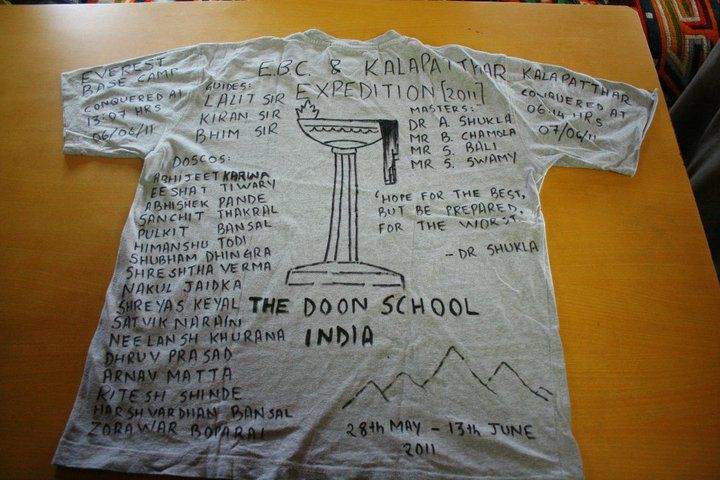 EVEREST
BASE CAMP
CONQUERED AT
13:07 HRS
06/06/11
E.B.C. & KALAPATTHAR
EXPEDITION [2011]
KALAPATTHAR
CONQUERED AT
06:14 HRS
07/06/11
GUIDES:
LALIT SIR
KIRAN SIR
BHIM SIR
MASTERS:
DR A. SHUKLA
MR B. CHAMOLA
MR S. BALI
MR S. SWAMY
DOSCOS:
ABHIJEET KARWA
EESHAT TIWARY
ABHISHEK PANDE
SANCHIT THAKRAL
PULKIT BANSAL
HIMANSHU TODI
SHUBHAM DHINGRA
SHRESHTHA VERMA
NAKUL JAIDKA
SHREYAS KEYAL
SATVIK NARAIN
NEELANSH KHURANA
DHRUV PRASAD
ARNAV MATTA
RITESH SHINDE
HARSHVARDHAN BANSAL
ZORAWAR BOPARAI
"HOPE FOR THE BEST,
BUT BE PREPARED,
FOR THE WORST.
- DR SHUKLA
THE DOON SCHOOL
INDIA
28th MAY - 13th JUNE
2011